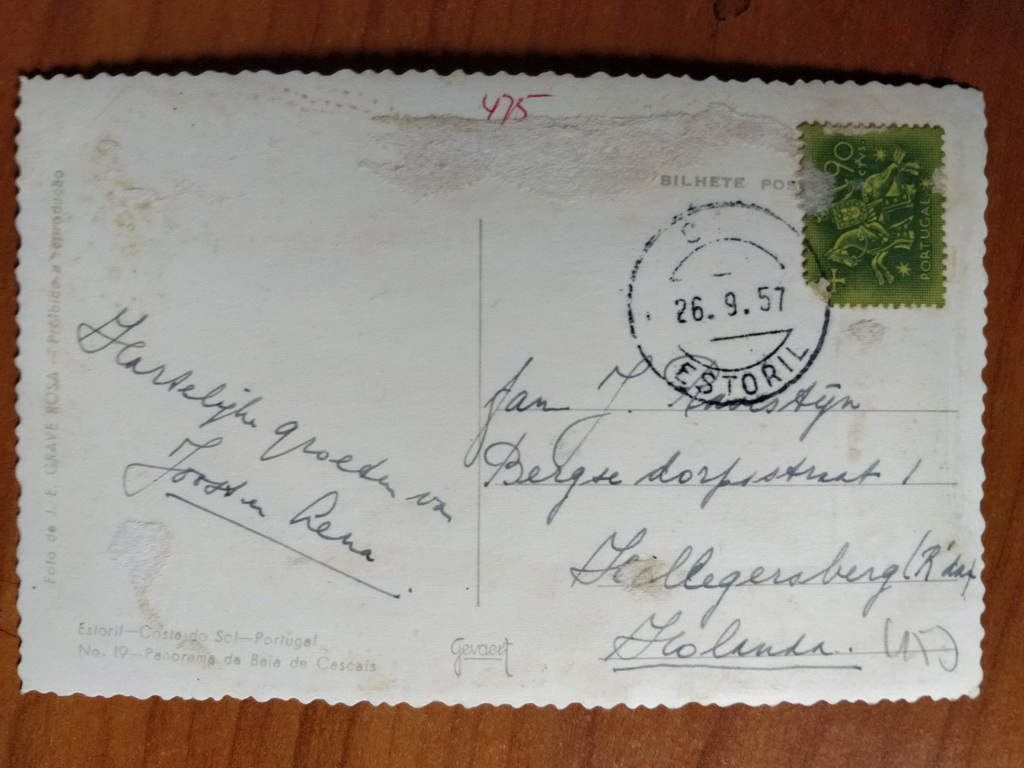 475
BILHETE POS
90
CTVS
PORTUGAL
C
26.9.57
ESTORIL
Foto de J. E. GRAVE ROSA — Proibida a reprodução
Hartelijke groeten van
Joost en Lena
Jan J.
Bergse dorpsstraat 1
Hillegersberg (R'dam
Holanda.
(15)
Estoril—Costa do Sol—Portugal
No. 19—Panorama da Baía de Cascais
Gevaert